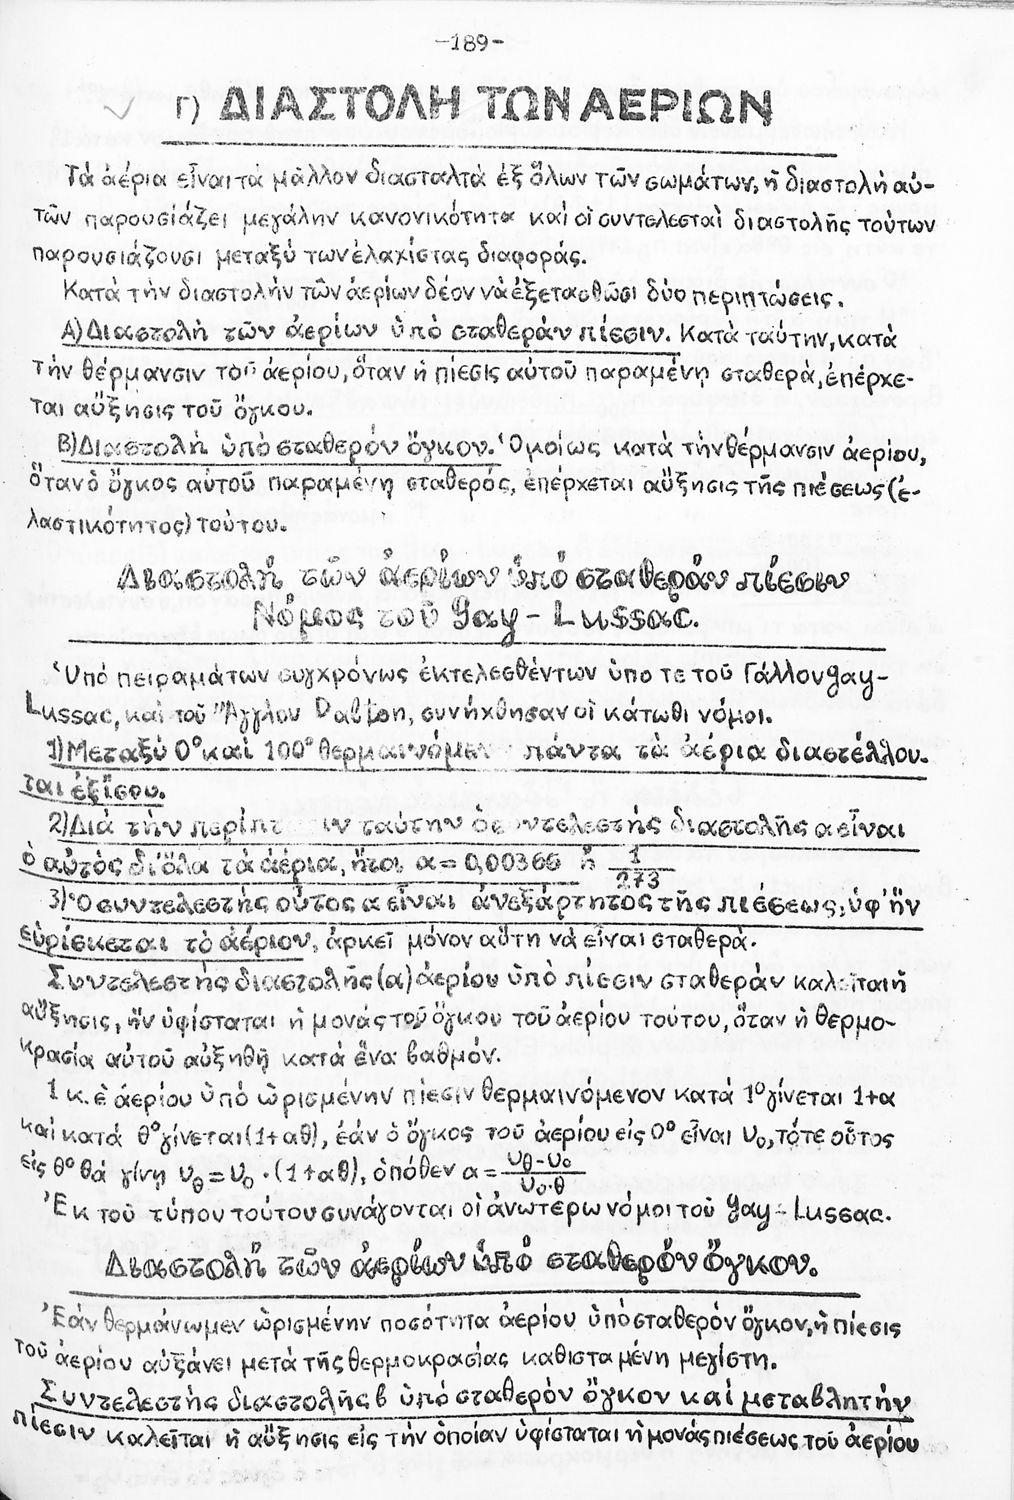 -189-
Γ) ΔΙΑΣΤΟΛΗ ΤΩΝ ΑΕΡΙΩΝ
Τὰ ἀέρια εἶναι τὰ μᾶλλον διασταλτὰ ἐξ ὅλων τῶν σωμάτων, ἡ διαστολὴ αὐ-
τῶν παρουσιάζει μεγάλην κανονικότητα καὶ οἱ συντελεσταὶ διαστολῆς τούτων
παρουσιάζουσι μεταξύ των ἐλαχίστας διαφοράς.
Κατὰ τὴν διαστολὴν τῶν ἀερίων δέον νὰ ἐξετασθῶσι δύο περιπτώσεις.
Α) Διαστολὴ τῶν ἀερίων ὑπὸ σταθερὰν πίεσιν. Κατὰ ταύτην, κατὰ
τὴν θέρμανσιν τοῦ ἀερίου, ὅταν ἡ πίεσις αὐτοῦ παραμένῃ σταθερὰ, ἐπέρχε-
ται αὔξησις τοῦ ὄγκου.
Β) Διαστολὴ ὑπὸ σταθερόν ὄγκον. Ὁμοίως κατὰ τὴν θέρμανσιν ἀερίου,
ὅταν ὁ ὄγκος αὐτοῦ παραμένῃ σταθερός, ἐπέρχεται αὔξησις τῆς πιέσεως (ἐ-
λαστικότητος) τούτου.
Διαστολή τῶν ἀερίων ὑπό σταθεράν πίεσιν
Νόμος τοῦ Gay - Lussac.
Ὑπό πειραμάτων συγχρόνως ἐκτελεσθέντων ὑπο τε τοῦ Γάλλου Gay-
Lussac, καὶ τοῦ Ἄγγλου Dalton, συνήχθησαν οἱ κάτωθι νόμοι.
1) Μεταξύ 0° καὶ 100° πάντα τὰ ἀέρια διαστέλλον-
ται ἐξίσου.
2) Διὰ τὴν ταύτην ὁ συντελεστής διαστολῆς α εἶναι
ὁ αὐτὸς δι' ὅλα τὰ ἀέρια, ἤτοι α = 0,00366 ἤ 1/273
3) Ὁ συντελεστής οὗτος α εἶναι ἀνεξάρτητος τῆς πιέσεως, ὑφ' ἥν
εὑρίσκεται τὸ ἀέριον, ἀρκεῖ μόνον αὕτη νὰ εἶναι σταθερά.
Συντελεστής διαστολῆς (α) ἀερίου ὑπὸ πίεσιν σταθεράν καλεῖται ἡ
αὔξησις, ἥν ὑφίσταται ἡ μονάς τοῦ ὄγκου τοῦ ἀερίου τούτου, ὅταν ἡ θερμο-
κρασία αὐτοῦ αὐξηθῇ κατά ἕνα βαθμόν.
1 κ.ἑ ἀερίου ὑπό ὡρισμένην πίεσιν θερμαινόμενον κατά 1° γίνεται 1+α
καί κατά θ° γίνεται (1+αθ), ἐάν ὁ ὄγκος τοῦ ἀερίου εἰς 0° εἶναι υ₀, τότε οὗτος
εἰς θ° θά γίνῃ υθ = υ₀ · (1+αθ), ὁπόθεν α = υθ-υ₀/υ₀·θ
Ἐκ τοῦ τύπου τούτου συνάγονται οἱ ἀνωτέρω νόμοι τοῦ Gay - Lussac.
Διαστολή τῶν ἀερίων ὑπό σταθερόν ὄγκον.
Ἐάν θερμάνωμεν ὡρισμένην ποσότητα ἀερίου ὑπό σταθερόν ὄγκον, ἡ πίεσις
τοῦ ἀερίου αὐξάνει μετά τῆς θερμοκρασίας καθισταμένη μεγίστη.
Συντελεστής διαστολῆς β ὑπό σταθερόν ὄγκον καί μεταβλητήν
πίεσιν καλεῖται ἡ αὔξησις εἰς τήν ὁποίαν ὑφίσταται ἡ μονάς πιέσεως τοῦ ἀερίου